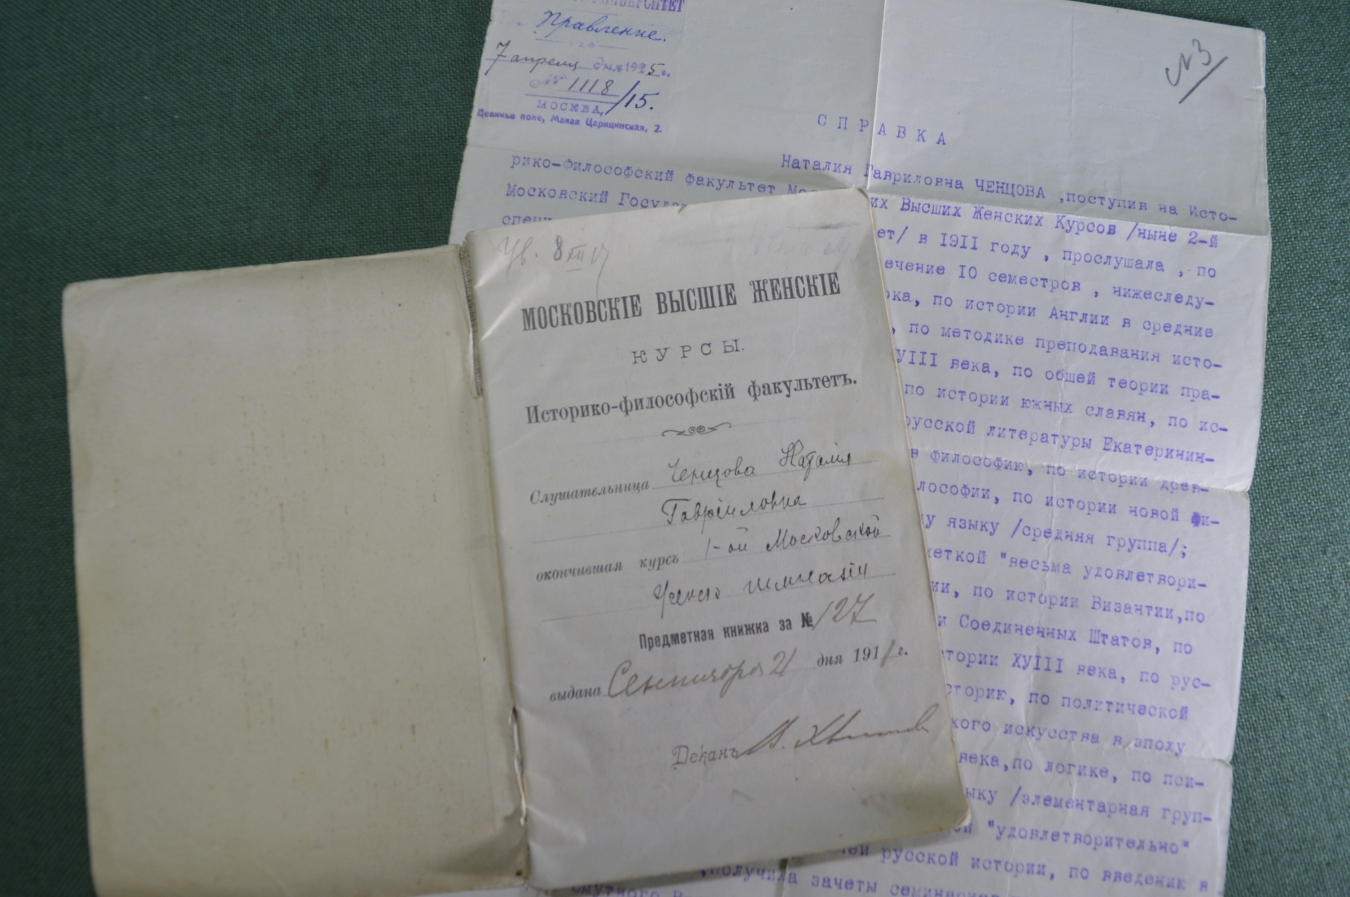 УНИВЕРСИТЕТ
Правление.
7 апреля дня 1925 г.
№ 1118/15.
МОСКВА,
Девичье поле, Малая Царицынская, 2.
№3
СПРАВКА
Наталия Гавриловна ЧЕНЦОВА ,поступив на Исто-
рико-Философский факультет
их Высших Женских Курсов /ныне 2-й
Московский Госуда
ет/ в 1911 году , прослушала , по
ечение 10 семестров , нижеследу-
ока, по истории Англии в средние
, по методике преподавания исто-
УIII века, по общей теории пра-
по истории южных славян, по ис-
русской литературы Екатеринин-
в философию, по истории древ-
лософии, по истории новой фи-
му языку /средняя группа/;
меткой "весьма удовлетвори-
ии, по истории Византии,по
и Соединенных Штатов, по
стории ХУIII века, по рус-
сторию, по политической
кого искусства в эпоху
века,по логике, по пси-
ыку /элементарная груп-
ой "удовлетворительно"
ей русской истории, по введению в
,получила зачеты
Смутного
Ув. 8 XII 17
МОСКОВСКІЕ ВЫСШІЕ ЖЕНСКІЕ
КУРСЫ.
Историко-философскій факультетъ.
Слушательница Ченцова Наталія
Гавріиловна
окончившая курсъ 1-ой Московской
женск гимназіи
Предметная книжка за № 127
выдана Сентября 21 дня 1911 г.
Деканъ